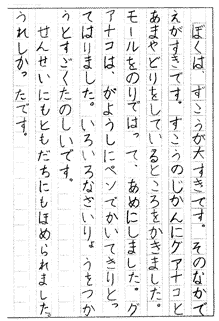 ぼくは、ずこうが大すきです。そのなかで
えがすきです。ずこうのじかんにグアナコと
あまやどりをしているところをかきました。
モールをのりではって、あめにしました。グ
アナコは、がようしにペンでかいてきりとっ
てはりました。いろいろなざいりょうをつか
うとすごくたのしいです。
せんせいにもともだちにもほめられました。
うれしかったです。